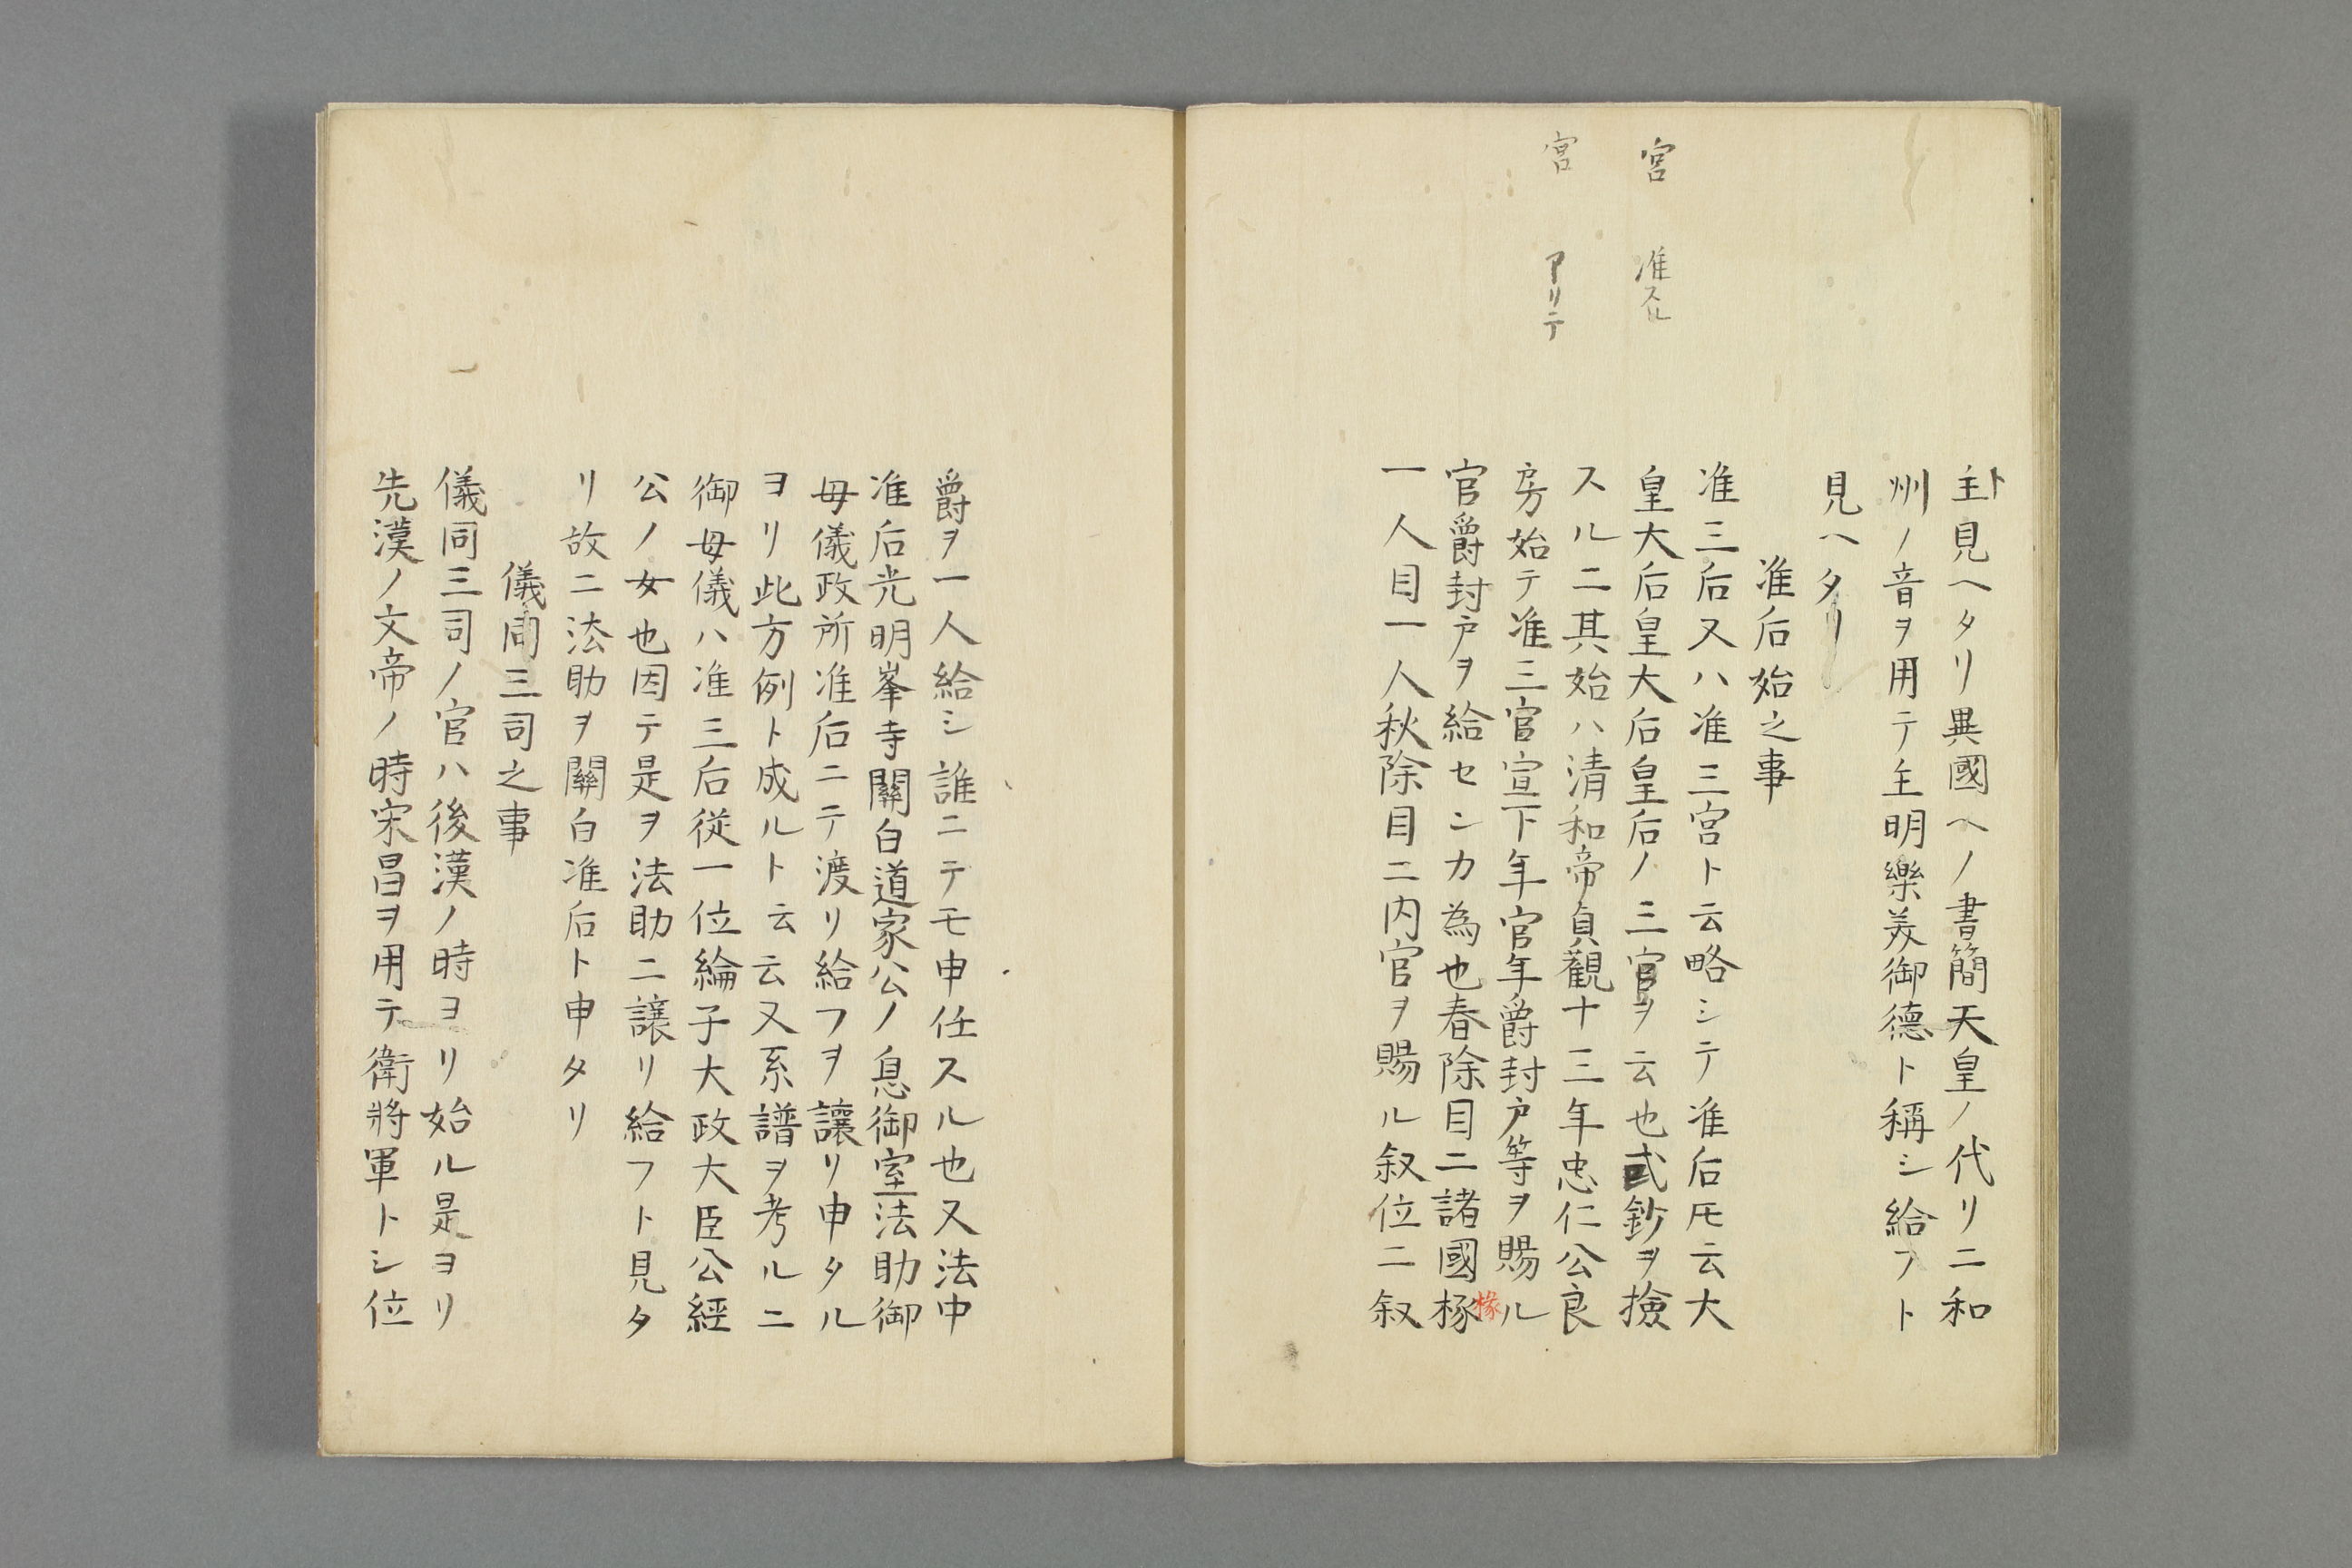 主ト見ヘタリ異國ヘノ書簡天皇ノ代リニ和
州ノ音ヲ用テ主明樂美御德ト稱シ給フト
見ヘタリ
准后始之事
准三后又ハ准三宮ト云略シテ准后𪜈云大
皇大后皇大后皇后ノ三官ヲ云也式鈔ヲ撿
スルニ其始ハ清和帝貞觀十三年忠仁公良
房始テ准三官宣下年官年爵封戸等ヲ賜ル
官爵封戸ヲ給センカ為也春除目ニ諸國椓
掾
一人目一人秋除目ニ内官ヲ賜ル叙位ニ叙
宮　准スル
宮　アリテ
爵ヲ一人給シ誰ニテモ申任スル也又法中
准后光明峯寺關白道家公ノ息御室法助御
母儀政所准后ニテ渡リ給フヲ讓リ申タル
ヨリ此方例ト成ルト云云又系譜ヲ考ルニ
御母儀ハ准三后従一位綸子大政大臣公經
公ノ女也因テ是ヲ法助ニ譲リ給フト見タ
リ故ニ法助ヲ關白准后ト申タリ
儀同三司之事
儀同三司ノ官ハ後漢ノ時ヨリ始ル是ヨリ
先漢ノ文帝ノ時宋昌ヲ用テ衛將軍トシ位